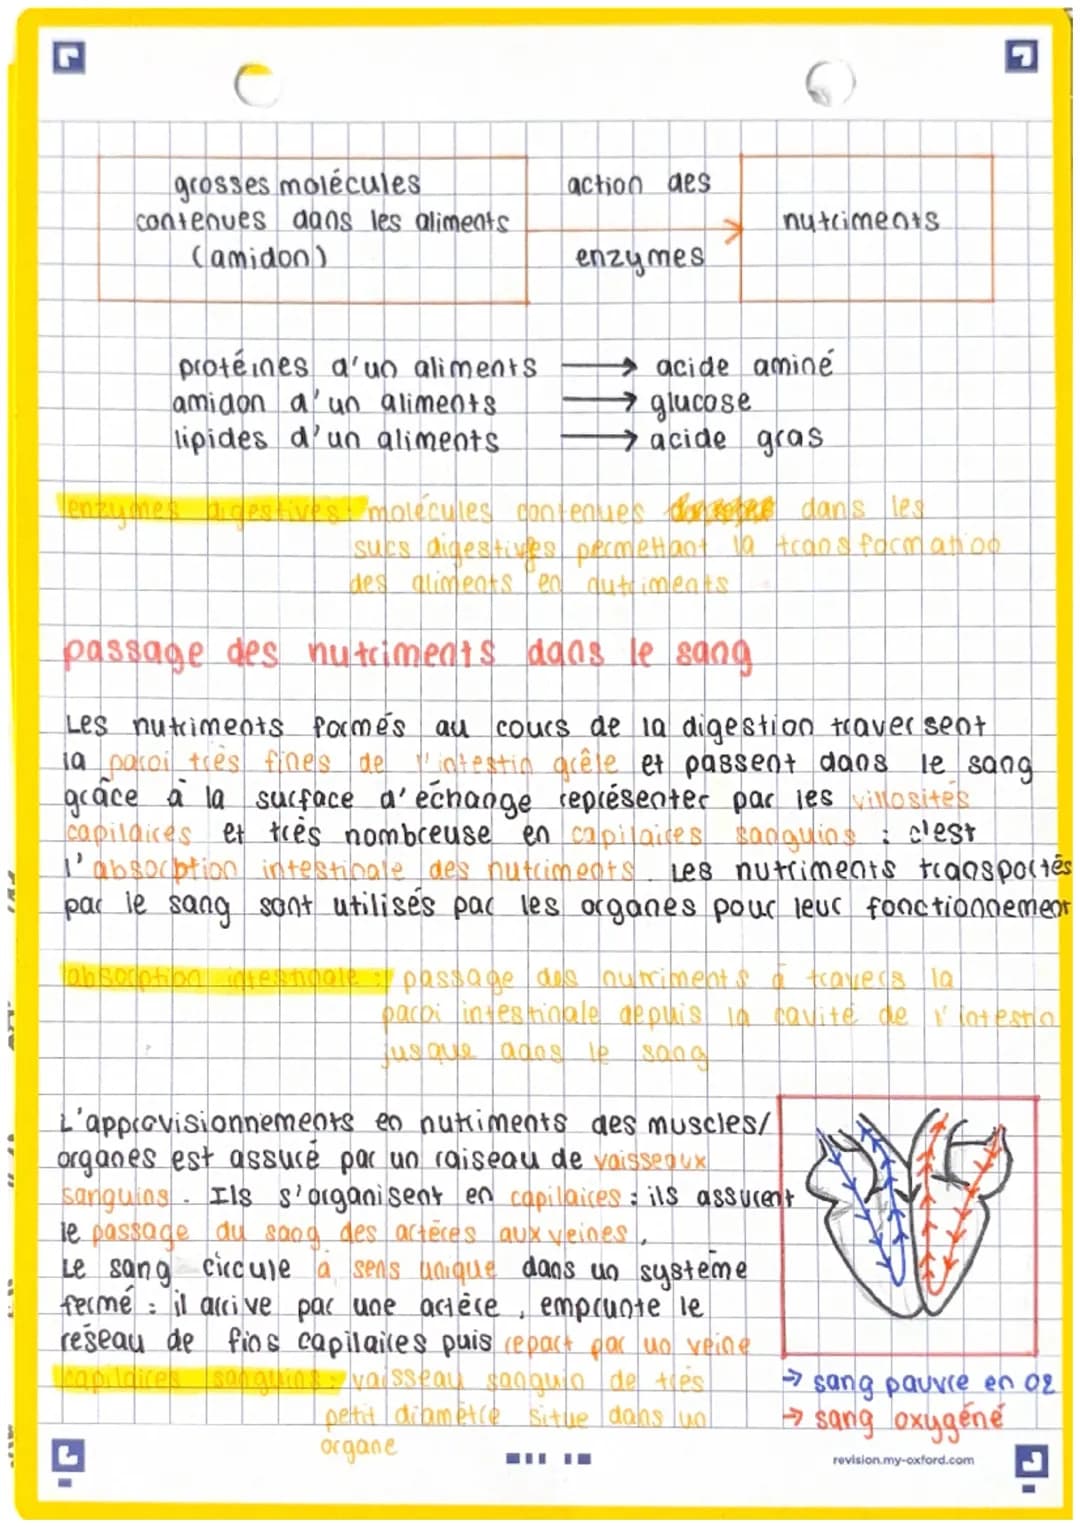 grosses molécules
contenues dans les aliments
(amidon)
action des
enzymes
nutriments
protéines d'un aliments → acide aminé
amidon d'un aliments → glucose
lipides d'un aliments → acide gras
enzymes digestives : molécules contenues dans les
sucs digestives permettant la transformation
des aliments en nutriments
passage des nutriments dans le sang
Les nutriments formés au cours de la digestion traversent
la paroi très fines de l'intestin grêle et passent dans le sang
grâce à la surface d'échange représenter par les villosités
capilaires et très nombreuse en capilaires sanguins : c'est
l'absorbtion intestinale des nutriments. Les nutriments transportés
par le sang sont utilisés par les organes pour leur fonctionnement
absorption intestinale : passage des nutriments à travers la
paroi intestinale depuis la cavité de l'intestin
jusque dans le sang
L'approvisionnements en nutriments des muscles/
organes est assuré par un raiseau de vaisseaux
sanguins. Ils s'organisent en capilaires : ils assurent
le passage du sang des artères aux veines,
Le sang circule à sens unique dans un système
fermé : il arrive par une artère, emprunte le
réseau de fins capilaires puis repart par un veine
capilaires sanguins : vaisseau sanguin de très
petit diamètre situe dans un
organe
→ sang pauvre en O2
→ sang oxygéné
revision.my-oxford.com